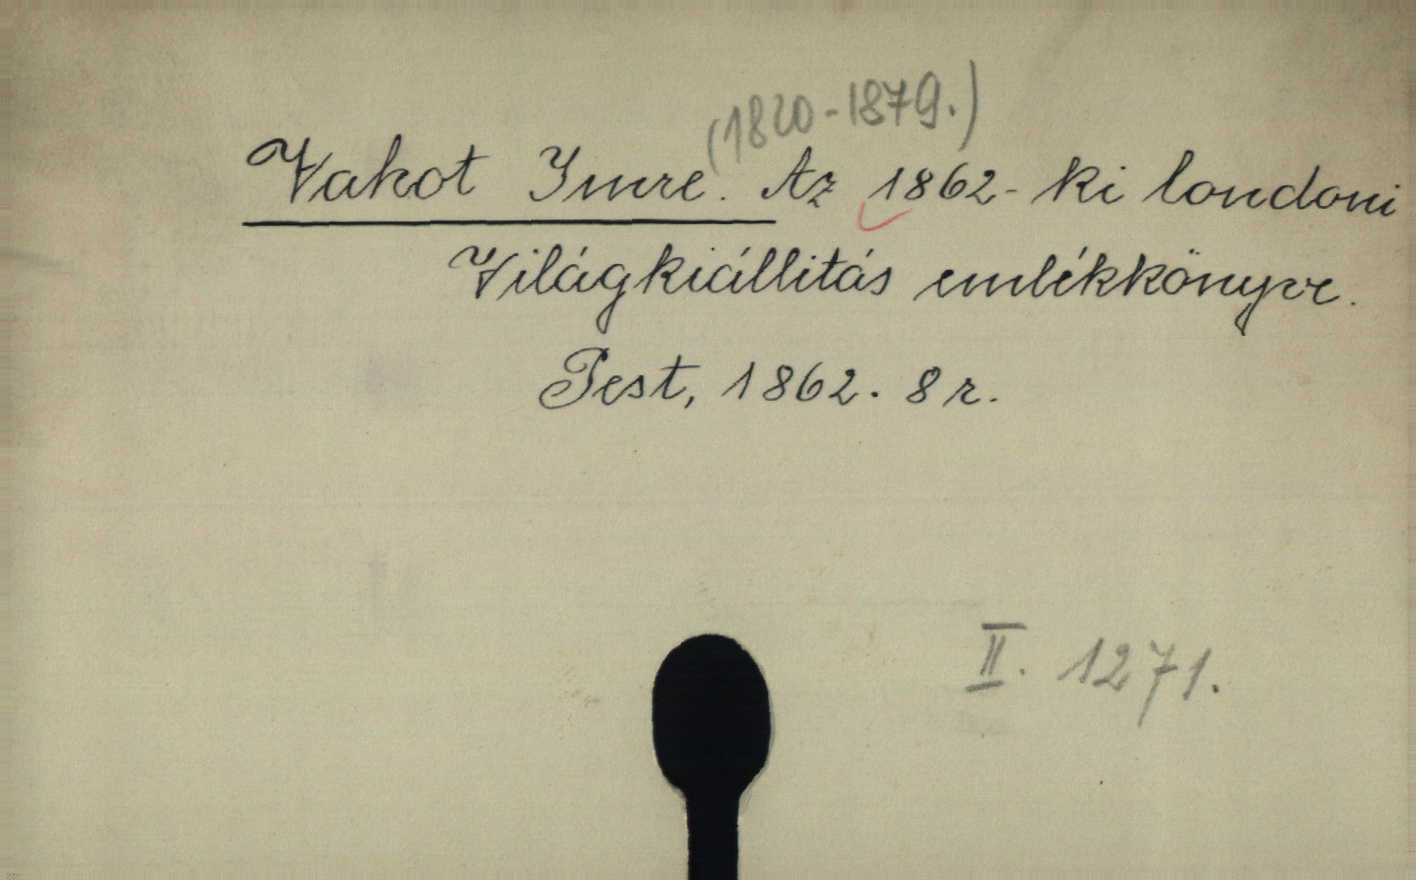 (1820-1879.)
Vahot Imre. Az 1862-ki londoni
Világkiállitás emlékkönyve.
Pest, 1862. 8 r.
II. 1271.